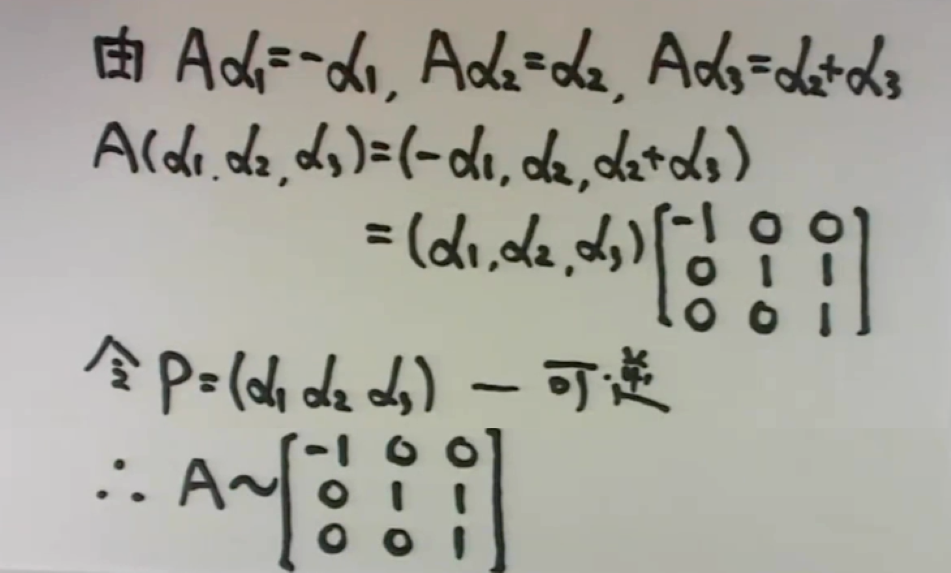 由 Aα₁=-α₁, Aα₂=α₂, Aα₃=α₂+α₃
A(α₁.α₂,α₃)=(-α₁,α₂,α₂+α₃)
=(α₁,α₂,α₃)[-1 0 0
0 1 1
0 0 1]
令 P=(α₁ α₂ α₃) — 可逆
∴ A~[-1 0 0
0 1 1
0 0 1]